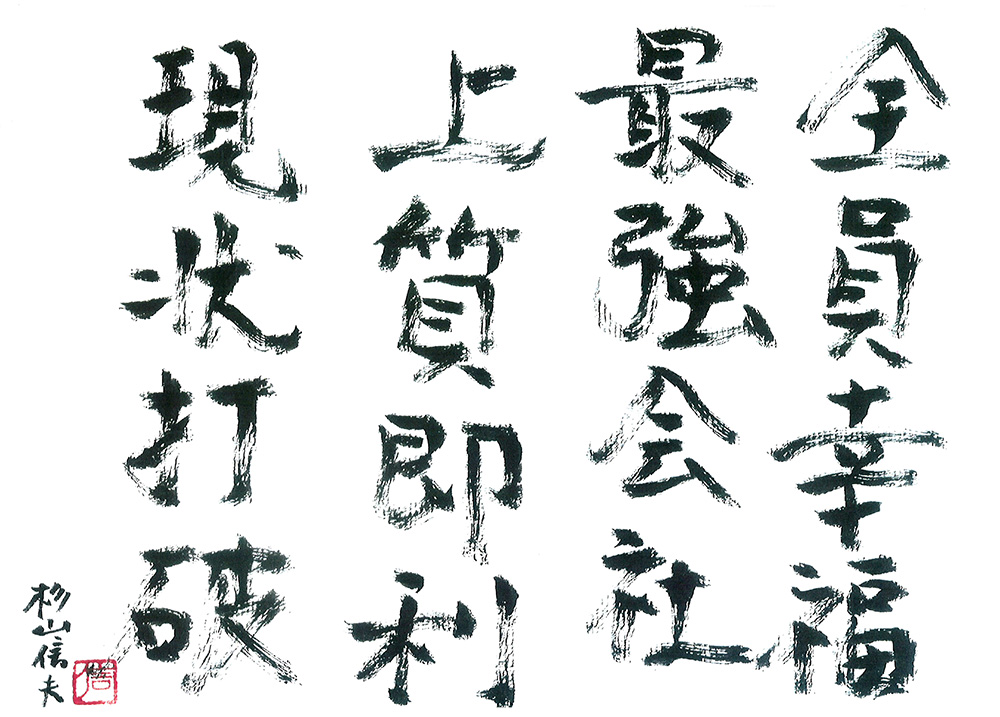 全員幸福
最強会社
上質即利
現状打破
杉山信夫
信